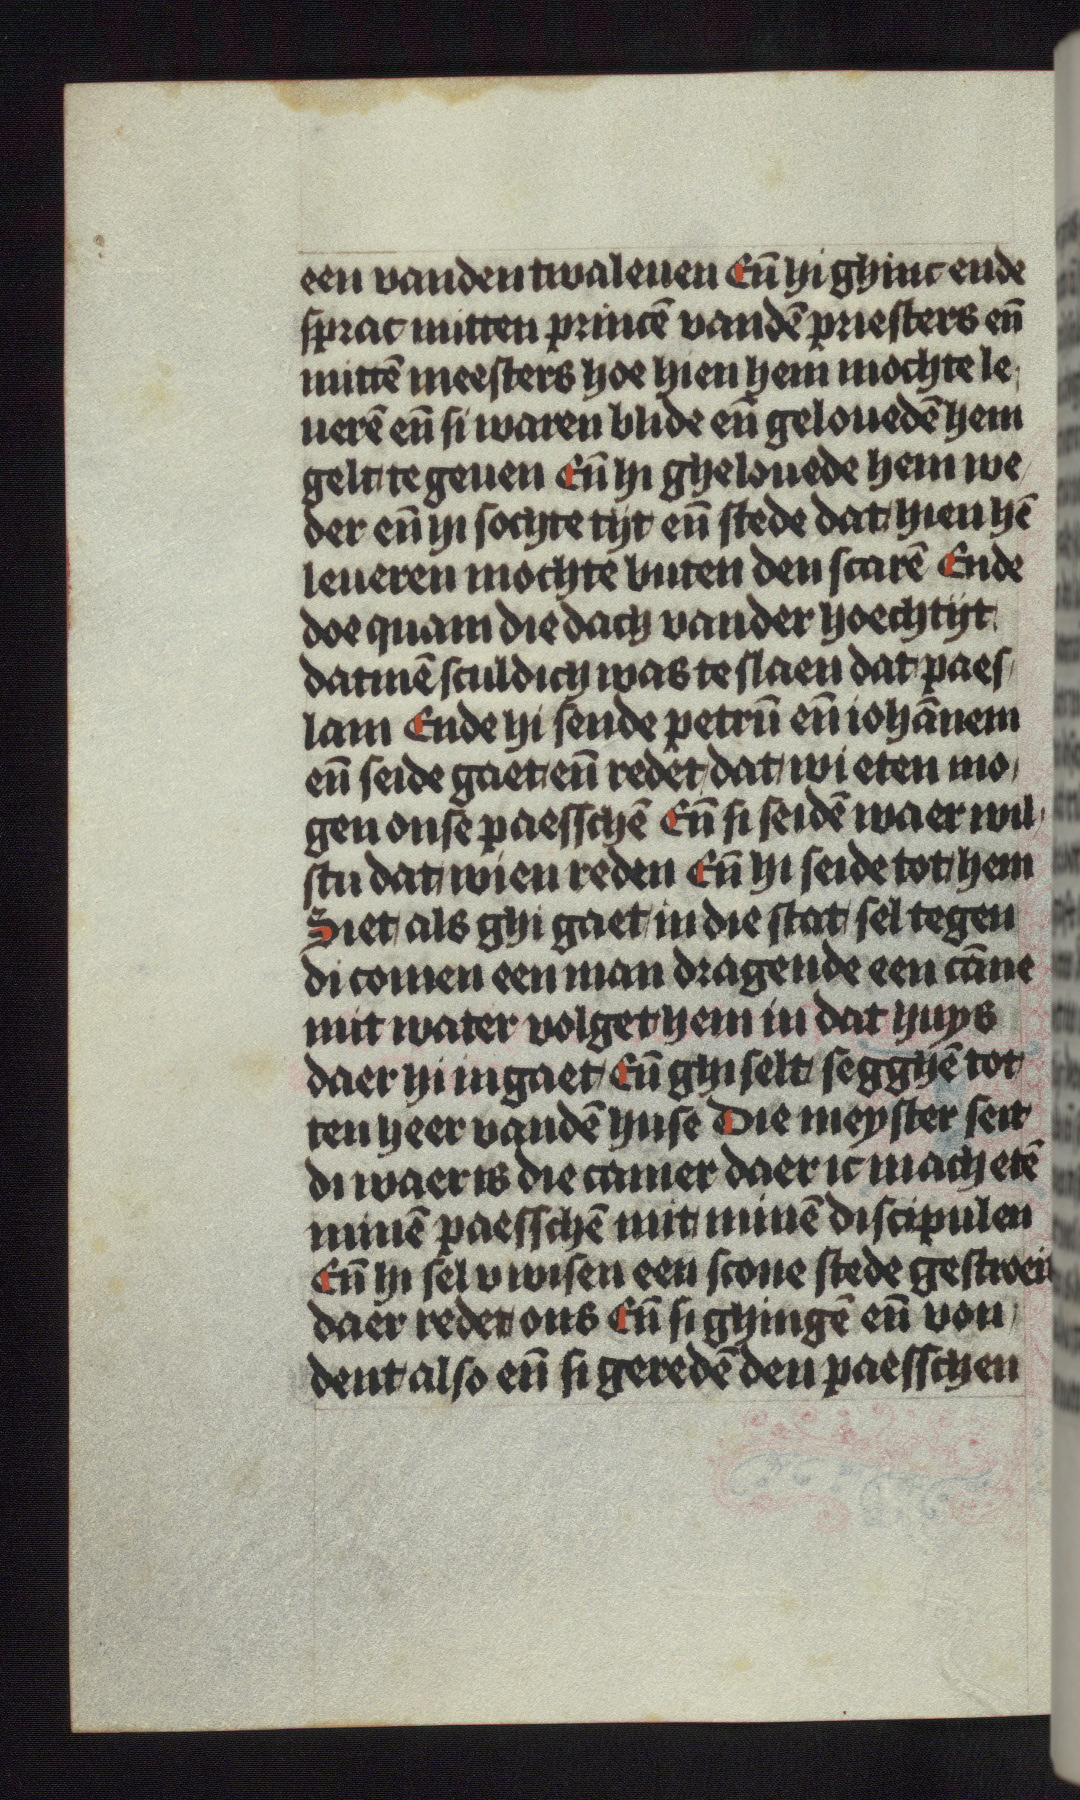 een vanden twaleuen Eñ hi ghinc ende
sprac mitten princē vandē priesters eñ
mittē meesters hoe hien hem mochte le
uerē eñ si waren blide eñ gelouedē hem
gelt te geuen Eñ hi ghelouede hem we
der eñ hi sochte tijt eñ stede dat hien hē
leueren mochte buten den scarē Ende
doe quam die dach vander hoechtijt
datmē sculdich was te slaen dat paes
lam Ende hi sende petrū eñ iohānem
eñ seide gaet eñ redet dat wi eten mo
gen onse paesschē Eñ si seidē waer wil
stu dat wien reden Eñ hi seide tot hem
Siet als ghi gaet in die stat sel tegen
di comen een man dragende een cāne
mit water volget hem in dat huys
daer hi in gaet Eñ ghi selt segghē tot
ten heer vandē huse Die meyster seit
di waer is die camer daer ic mach etē
minē paesschē mit minē discipulen
Eñ hi sel v wisen een scone stede gestroeit
daer redet ons Eñ si ghingē eñ von
dent also eñ si geredē den paesschen